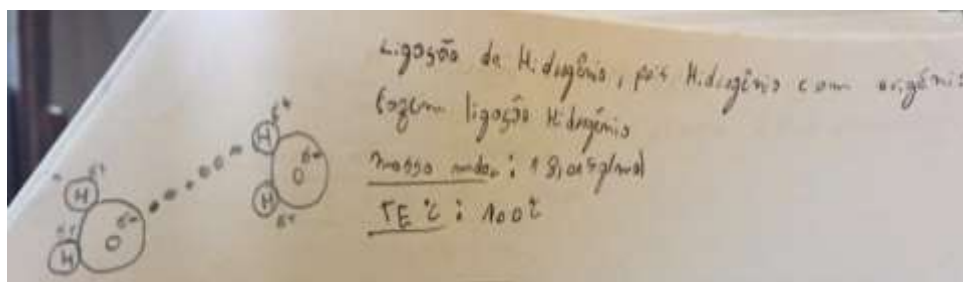 Ligação de Hidrogênio, pois Hidrogênio com oxigênio
fazem ligação Hidrogênio
massa molar: 18,015g/mol
TE °C: 100°C
H δ+
H δ+
O δ-
H δ+
H δ+
O δ-